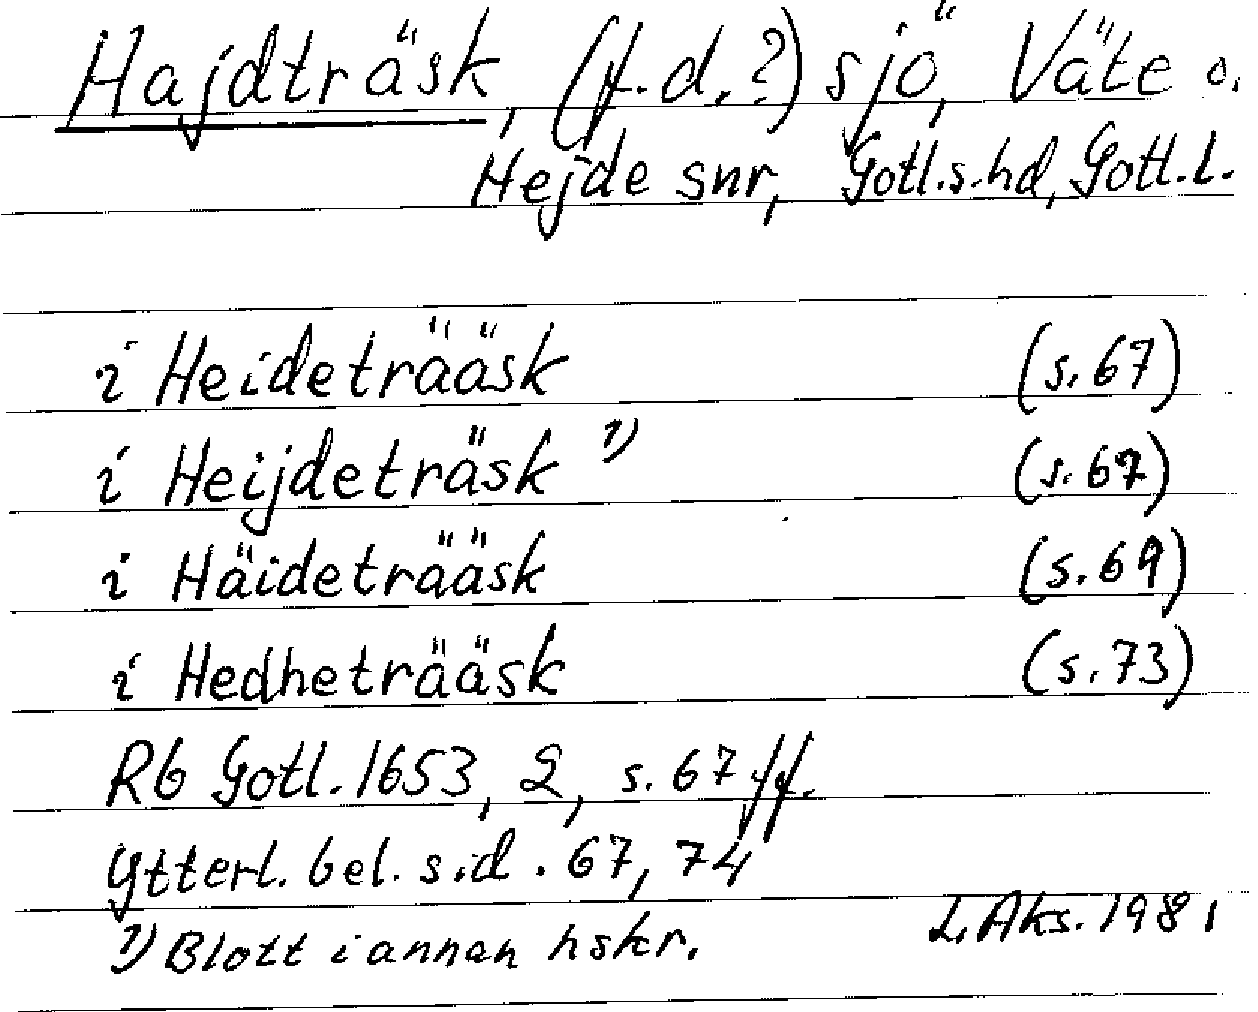 Hajdträsk, (f.d.?) sjö, Väte o.
Hejde snr, Gotl.s.hd, Gotl.l.
i Heideträäsk (s.67)
i Heijdeträsk 1) (s.67)
i Häideträäsk (s.69)
i Hedheträäsk (s.73)
Rb Gotl. 1653, 2, s. 67 ff.
Ytterl. bel. s.d. 67, 74
1) Blott i annan hskr. L. Aks. 1981